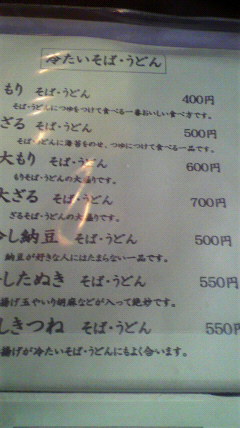 冷たいそば・うどん
もり そば・うどん 400円
そば・うどんにつゆをつけて食べる一番おいしい食べ方です。
ざる そば・うどん 500円
そば・うどんに海苔をのせ、つゆにつけて食べる一品です。
大もり そば・うどん 600円
もりそば・うどんの大盛りです。
大ざる そば・うどん 700円
ざるそば・うどんの大盛りです。
し納豆 そば・うどん 500円
納豆が好きな人にはたまらない一品です。
したぬき そば・うどん 550円
揚げ玉やいり胡麻などが入って絶妙です。
しきつね そば・うどん 550円
揚げが冷たいそば・うどんにもよく合います。